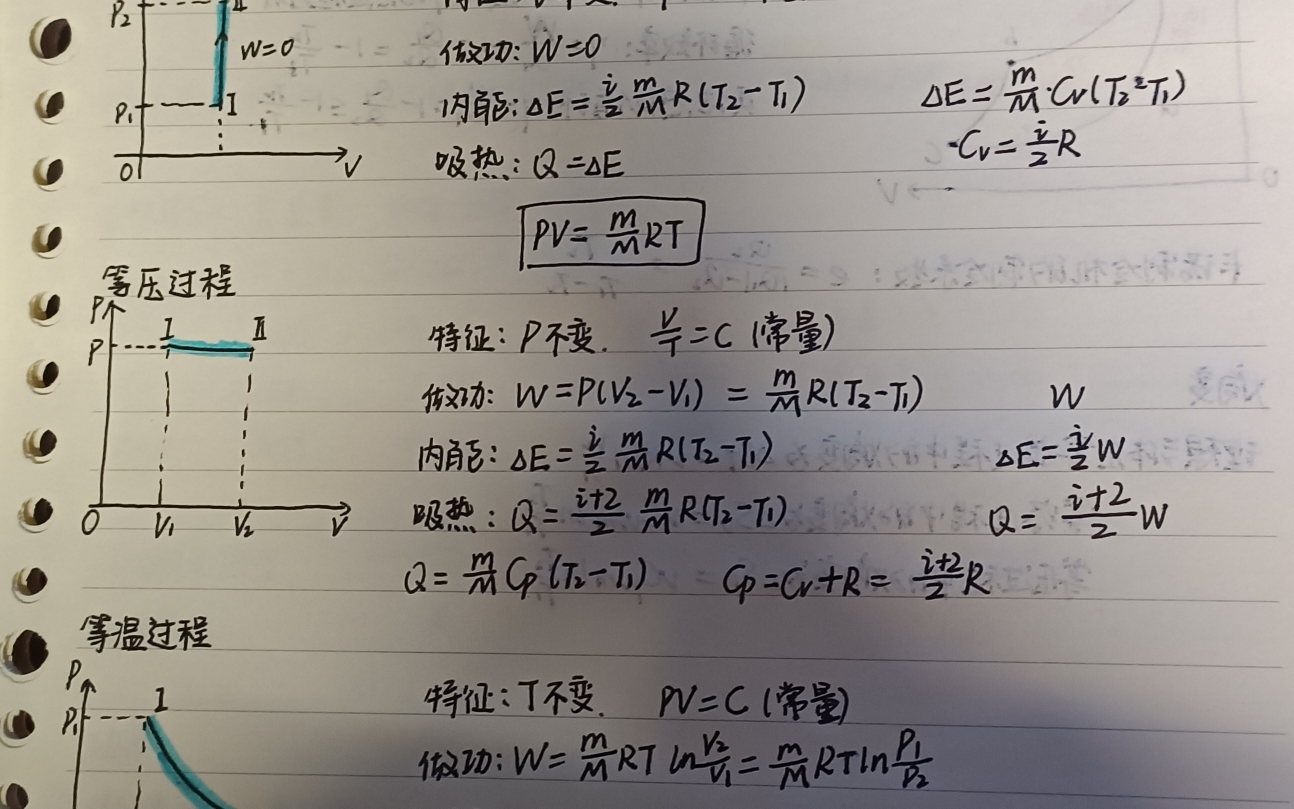 P₂ II
W=0
做功: W=0
P₁ I
内能: ΔE = i/2 m/M R(T₂-T₁) ΔE = m/M·Cv(T₂-T₁)
Cv = i/2 R
吸热: Q=ΔE
O V
PV = m/M RT
等压过程
P
P I II
特征: P不变. V/T = C (常量)
做功: W=P(V₂-V₁) = m/M R(T₂-T₁) W
内能: ΔE = i/2 m/M R(T₂-T₁) ΔE = i/2 W
吸热: Q = i+2/2 m/M R(T₂-T₁) Q = i+2/2 W
O V₁ V₂ V
Q = m/M Cp (T₂-T₁) Cp = Cv+R = i+2/2 R
等温过程
P
P₁ I
特征: T不变. PV=C (常量)
做功: W = m/M RT ln V₂/V₁ = m/M RT ln P₁/P₂